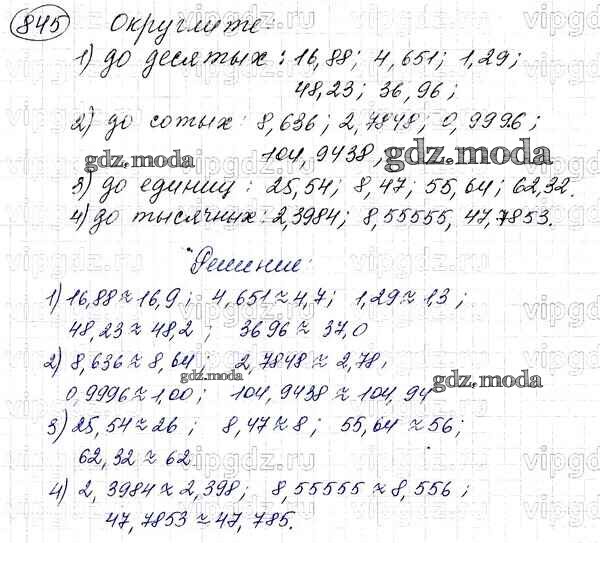 845 Округлите:
1) до десятых: 16,88; 4,651; 1,29;
48,23; 36,96;
2) до сотых: 8,636; 2,7848; 0,9996;
104,9438,
3) до единиц: 25,54; 8,47; 55,64; 62,32.
4) до тысячных: 2,3984; 8,55555, 47,7853.
Решение:
1) 16,88 ≈ 16,9; 4,651 ≈ 4,7; 1,29 ≈ 1,3;
48,23 ≈ 48,2; 36 96 ≈ 37,0
2) 8,636 ≈ 8,64; 2,7848 ≈ 2,78,
0,9996 ≈ 1,00; 104,9438 ≈ 104,94
3) 25,54 ≈ 26; 8,47 ≈ 8; 55,64 ≈ 56;
62,32 ≈ 62
4) 2,3984 ≈ 2,398; 8,55555 ≈ 8,556;
47,7853 ≈ 47,785.
gdz.moda
gdz.moda
gdz.moda
gdz.moda
vipgdz.ru